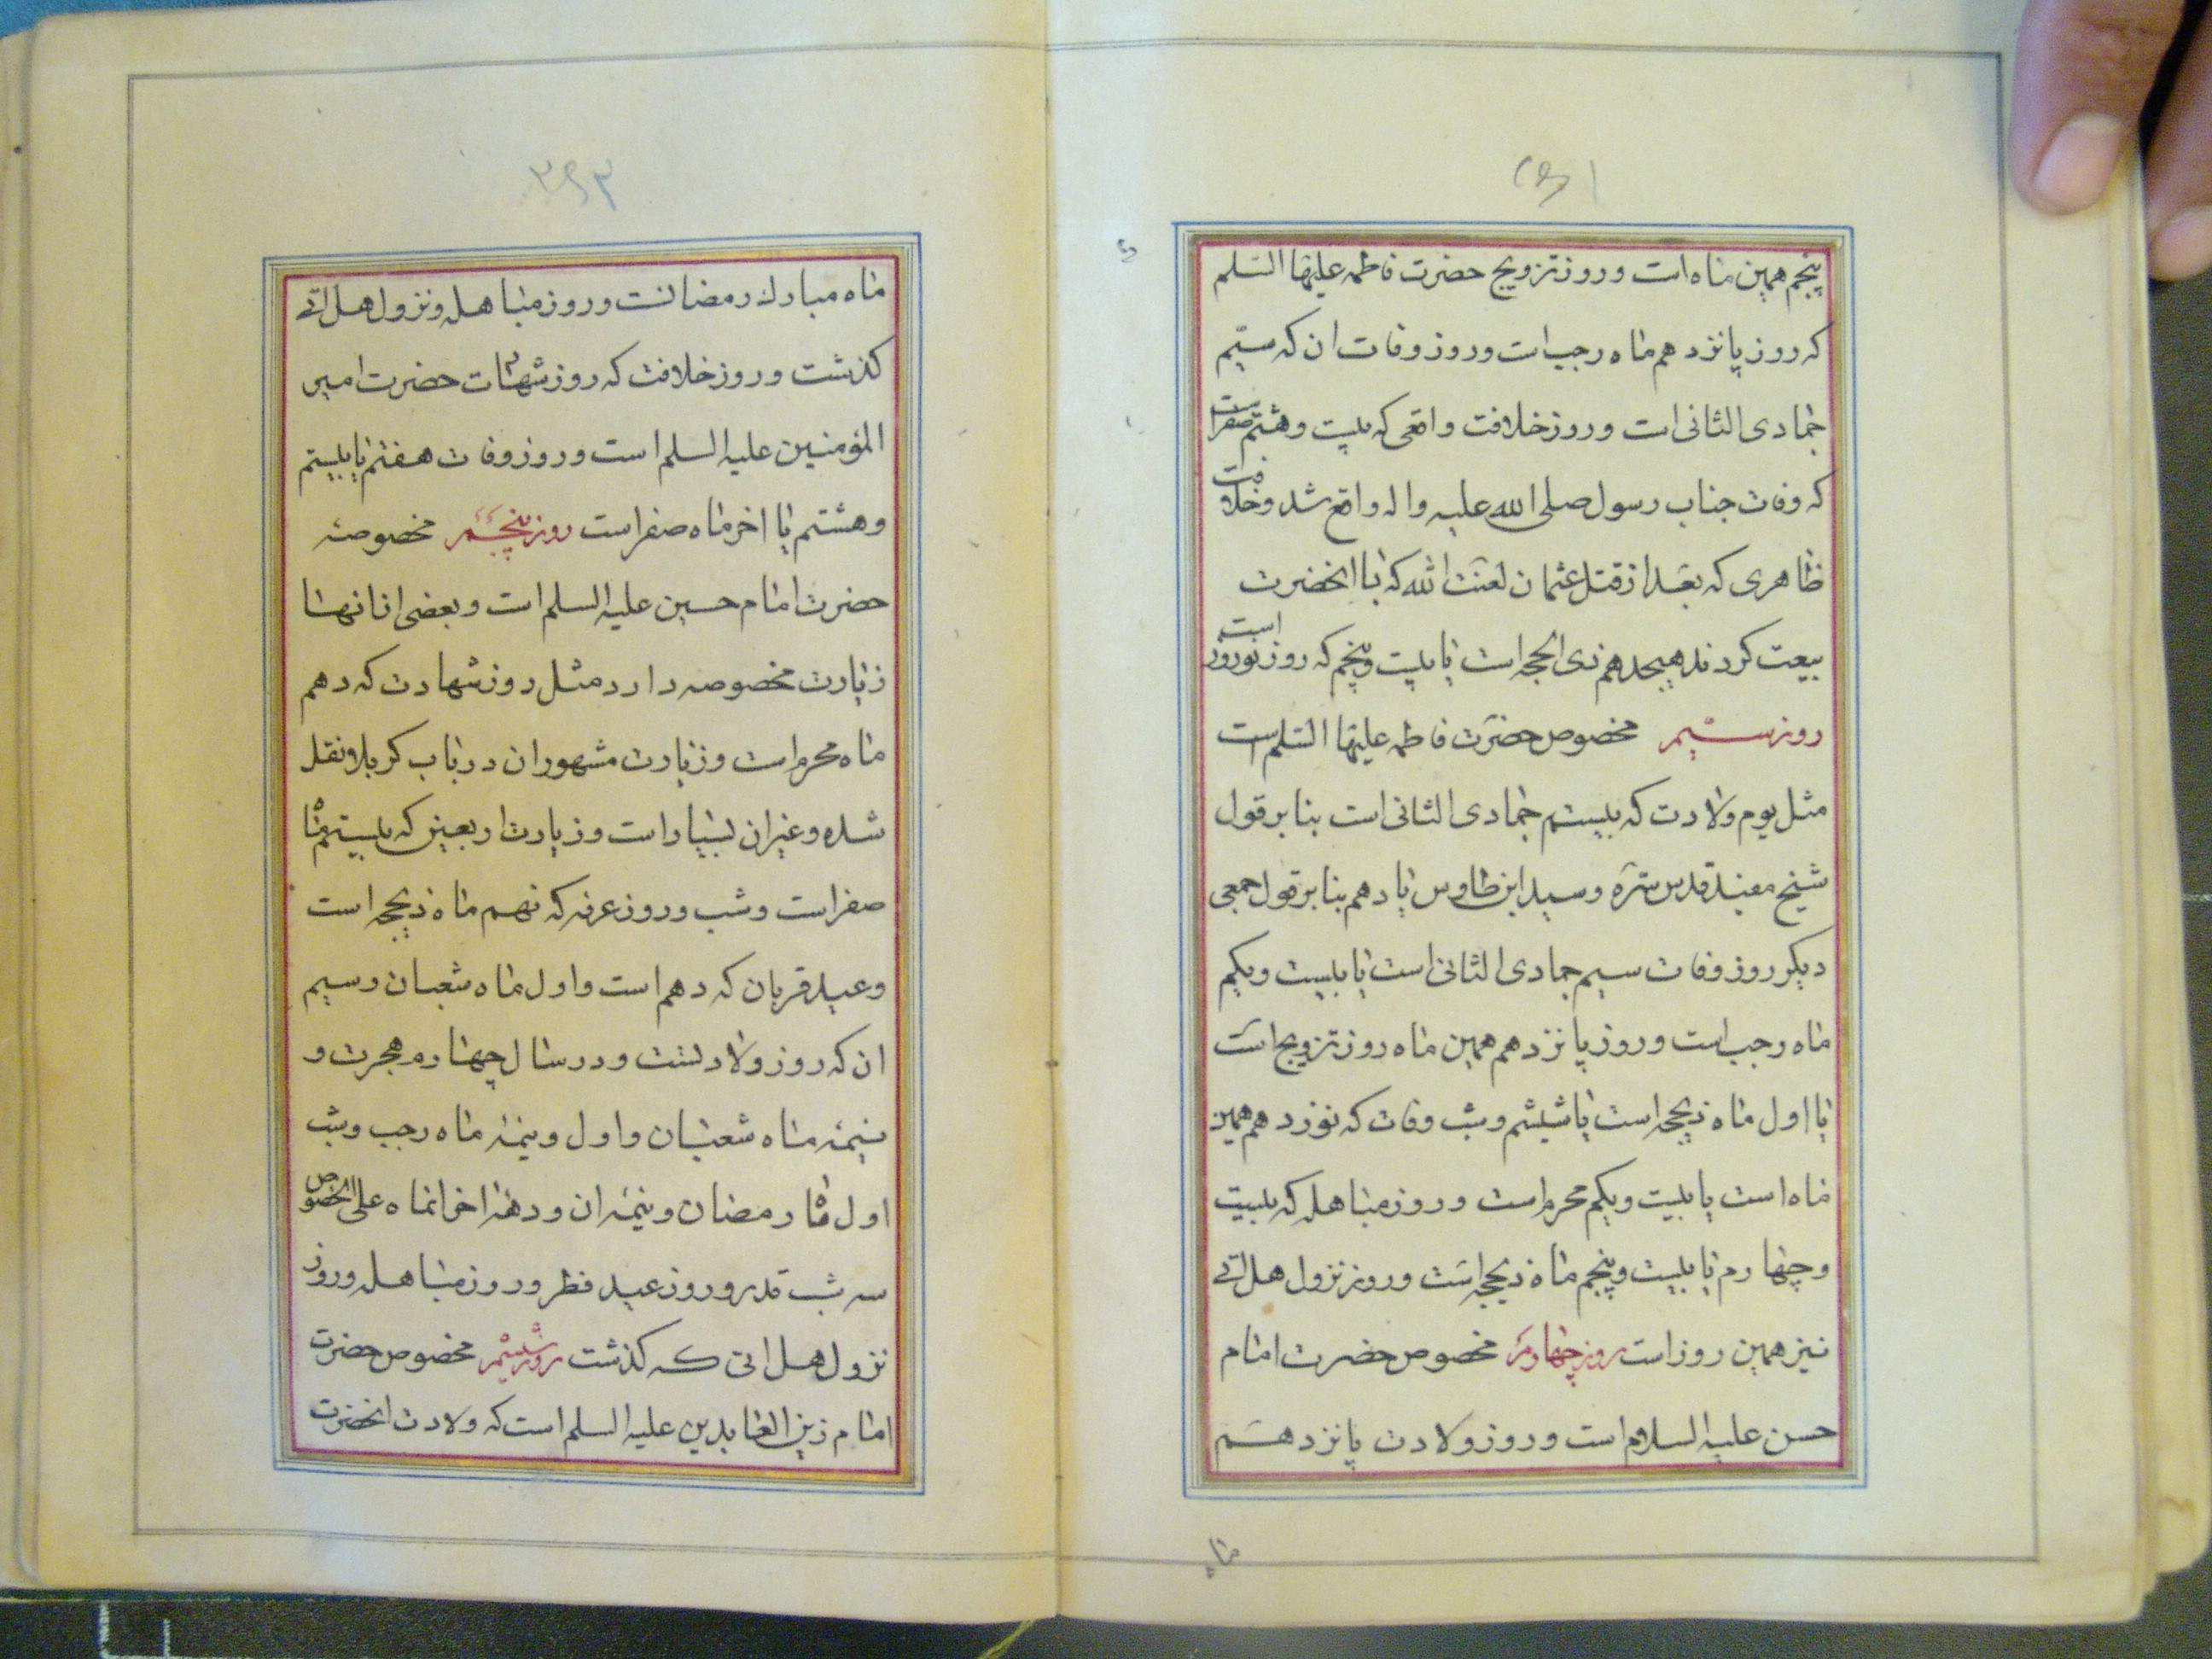 پنجم همین ماه است و روز تزویج حضرت فاطمه علیها السّلم
که روز پانزدهم ماه رجب است و روز وفات ان که سیّم
جمادی الثانی است و روز خلافت واقعی که بیست و هشتم صفر است
که وفات جناب رسول صلی الله علیه واله واقع شد و خلافت
ظاهری که بعَد از قتل عثمان لعنَت الله که با انحضرت
بیعت کردند هیجدهم ذی الحجه است یا بیست و پنجم که روز نوروز است
روز سیّم مخصوص حضرَت فاطمه علیها السّلم است
مثل یوم ولادت که بیستم جمادی الثانی است بنا بر قول
شیخ مفید قدس سرّه و سید ابن طاوس یا دهم بنا بر قول جمعی
دیگر روز وفات سیم جمادی الثانی است یا بیست و یکم
ماه رجب است و روز پانزدهم همین ماه روز تزویج است
یا اول ماه ذیحجه است یا ششم و شب وفات که نوزدهم همین
ماه است یا بیست و یکم محرم است و روز مباهله که بیست
و چهارم یا بیست و پنجم ماه ذیحجه است و روز نزول هل اتی
نیز همین روز است روز چهارم مخصوص حضرت امام
حسن علیه السلام است و روز ولادت پانزدهم
ماه
۳۹۳
ماه مبارک رمضانست و روز مباهله و نزول هل اتی
کذشت و روز خلافت که روز شهادت حضرت امیر
المؤمنین علیه السلم است و روز وفات هفتم یا بیستم
و هشتم یا اخر ماه صفر است روز پنجم مخصوصه
حضرت امام حسین علیه السلم است و بعضی از انها
زیارت مخصوصه دارد مثل روز شهادت که دهم
ماه محرم است و زیارت مشهور ان در باب کربلا نقل
شده و غیر ان بسیار است و زیارت اربعین که بیستم ماه
صفر است و شب و روز عرفه که نهم ماه ذیحجه است
و عید قربان که دهم است و اول ماه شعبان و سیم
ان که روز ولادتست و در سال چهارم هجرت و
نیمه ماه شعبان و اول و نیمه ماه رجب و شب
اول ماه رمضان و نیمه ان و دهه اخر انماه علی الخصوص
سه شب قدر و روز عید فطر و روز مباهله و روز
نزول هل اتی که کذشت روز ششم مخصوص حضرت
امام زین العابدین علیه السلم است که ولادت انحضرت